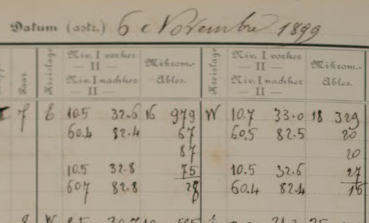 Datum (astr.) 6 Novembre 1899
Kreislage Niv. I vorher — II — Niv. I nachher — II Mikrom.-Ables. Kreislage Niv. I vorher — II — Niv. I nachher — II Mikrom.-Ables.
I 7 E 10.5 32.6 16 979 W 10.7 33.0 18 329
60.4 82.4 67 60.5 82.5 20
87 20
10.5 32.8 75 10.5 32.6 27
60.7 82.8 28 60.4 82.4 15